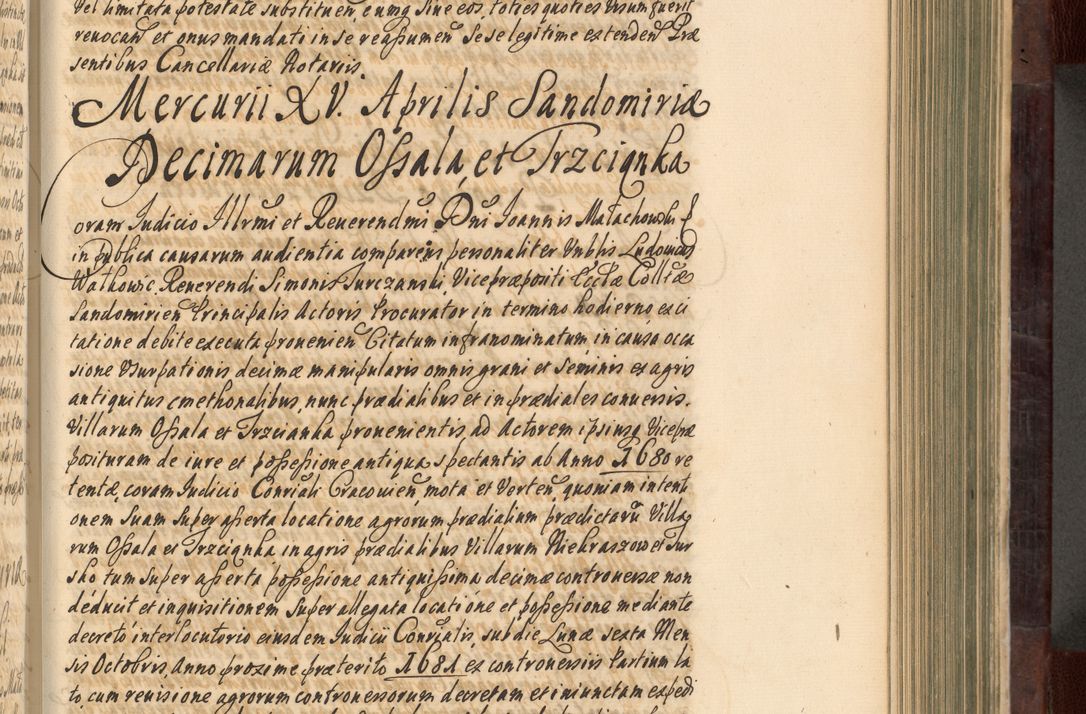 Vel limitata potestate substituen̄, eumq̨ siue eos, toties quoties Vsum fuerit
reuocan̄ et onus mandati in se reaſsumen̄ sese legitime extenden̄ Præ
sentibus Cancellariæ Notariis.
Mercurii XV. Aprilis Sandomiriæ
Decimarum Oſsala, et Trzcianka
Coram Iudicio Illrmi et Reuerendmi Dni Ioannis Małachowski
in publica causarum audientia comparens personaliter Vnblis Ludouicus
Watkowic, Reuerendi Simonis Turczanski, Vicepræpositi Eccłæ Collæ
Sandomirien̄ Principalis Actoris Procurator in termino hodierno ex ci
tatione debite executa prouenien̄ Citatum infranominatum, in causa occa
sione Vsurpationis decimæ manipularis omnis grani et Seminis ex agris
antiquitus cmethonalibus, nunc prædialibus et in prædiales conuersis.
Villarum Oſsala et Trzcianka prouenientis, ad Actorem ipsiusq̨ Vicepræ
posituram de iure et poſseſsione antiqua spectantis ab Anno 1680 re
tentæ, coram Iudicio Conriali Cracouien̄ mota et Verten̄, quoniam intenti
onem Suam Super aſserta locatione agrorum prædialium prædictarū Villa
rum Oſsala et Trzcianka in agris prædialibus Villarum Niekraszow et Tur
sko tum Super aſserta poſseſsione antiquiſsima decimæ controuersæ non
deducit et inquisitionem Super allegata locatione et poſseſsione mediante
decreto interlocutorio eiusdem Iudicii Conrialis, sub die Lunæ sexta Men
sis Octobris, Anno proxime præterito 1681 ex controuersiis Partium la
to, cum reuisione agrorum controuersorum decretam et iniunctam expedi